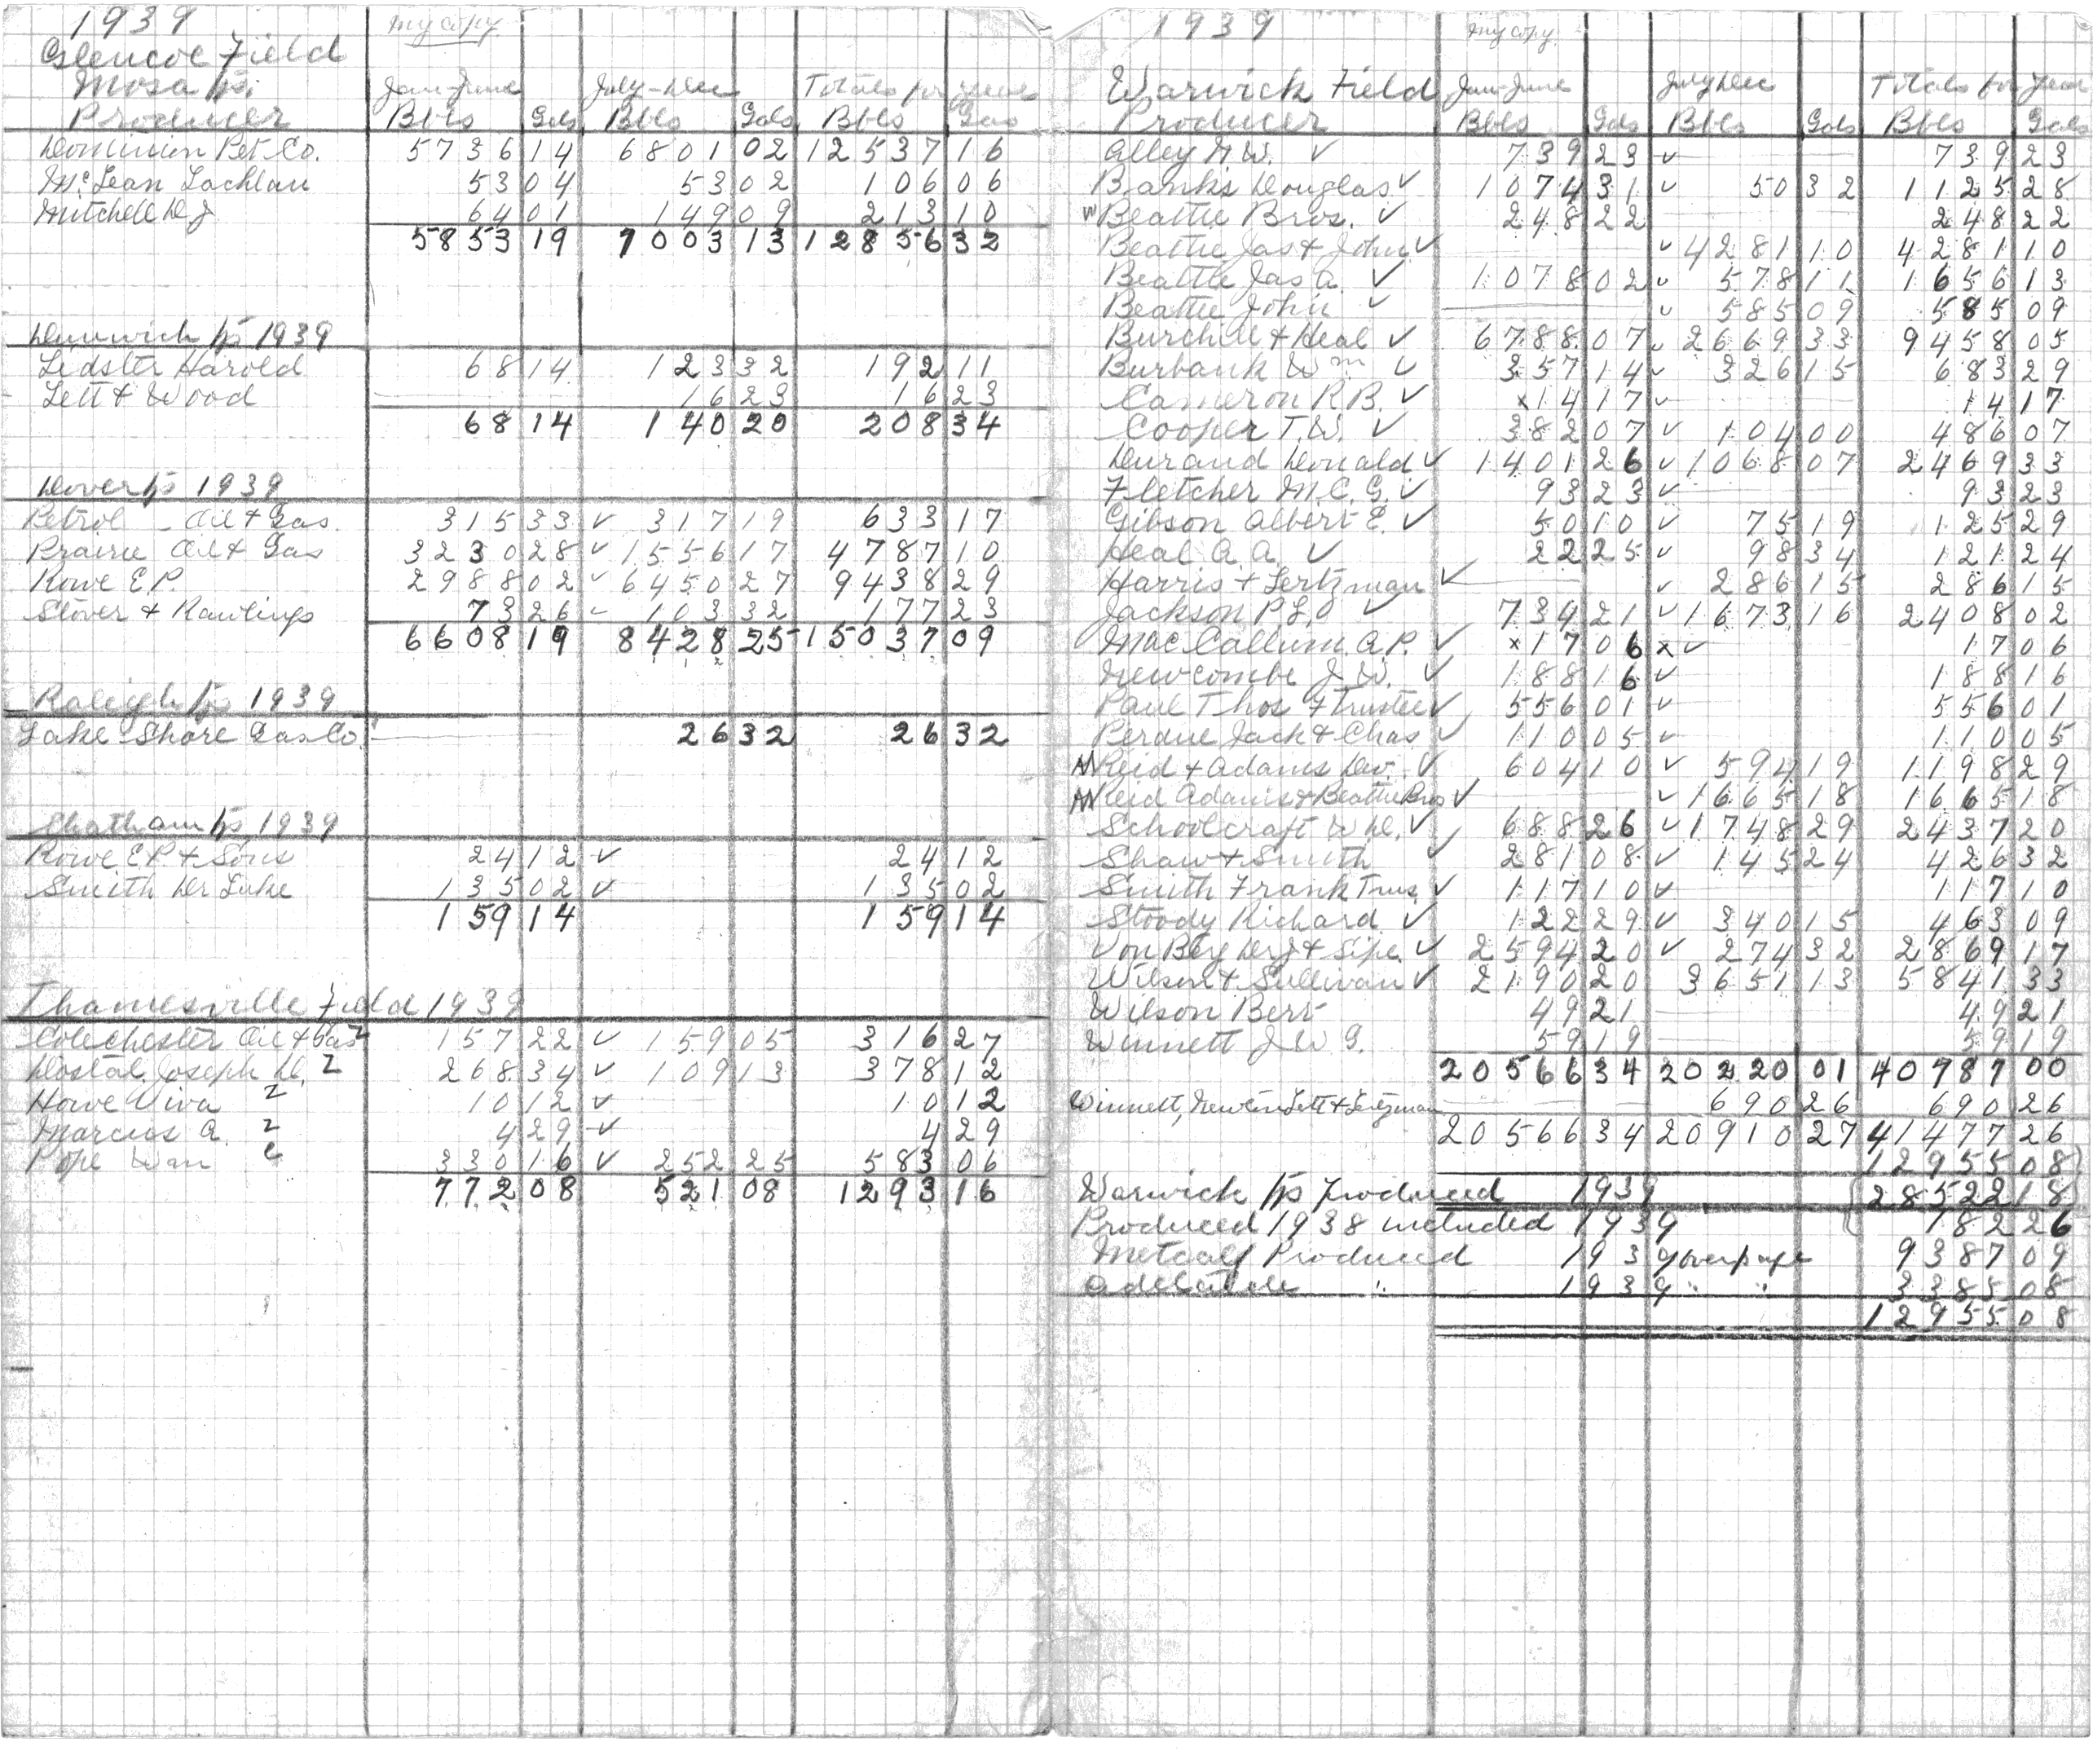 1939 my copy
Glencoe Field
Mosa tp. Jan-June July-Dec Totals for year
Producer Bbls Gals Bbls Gals Bbls Gals
Dominion Pet Co. 5736 14 6801 02 12537 16
McLean Lachlan 53 04 53 02 106 06
Mitchell D.J. 64 01 149 09 213 10
5853 19 7003 13 12856 32
Dunwich tp 1939
Lidster Harold 68 14 123 32 192 11
Lett & Wood 16 23 16 23
68 14 140 20 208 34
Dover tp 1939
Petrol Oil & Gas 315 33 ✓ 317 19 633 17
Prairie Oil & Gas 3230 28 ✓ 1556 17 4787 10
Rowe E.P. 2988 02 ✓ 6450 27 9438 29
Stover & Rawlings 73 26 ✓ 103 32 177 23
6608 19 8428 25 15037 09
Raleigh tp 1939
Lake Shore Gas Co. 26 32 26 32
Chatham tp 1939
Rowe E.P. & Sons 24 12 ✓ 24 12
Smith Dr Luke 135 02 ✓ 135 02
159 14 159 14
Thamesville Field 1939
Colechester Oil & Gas Z 157 22 ✓ 159 05 316 27
Dostal Joseph D. Z 268 34 ✓ 109 13 378 12
Howe Viva Z 10 12 ✓ 10 12
Marcus A. Z 4 29 ✓ 4 29
Pope Wm C 330 16 ✓ 252 25 583 06
772 08 521 08 1293 16
1939 my copy
Warwick Field Jan-June July Dec Totals for Year
Producer Bbls Gals Bbls Gals Bbls Gals
Alley N.W. ✓ 739 23 ✓ 739 23
Banks Douglas ✓ 1074 31 ✓ 50 32 1125 28
W Beattie Bros. ✓ 248 22 248 22
Beattie Jas & John ✓ ✓ 4281 10 4281 10
Beattie Jas A. ✓ 1078 02 ✓ 578 11 1656 13
Beattie John ✓ ✓ 585 09 585 09
Burchill & Heal ✓ 6788 07 ✓ 2669 33 9458 05
Burbank Wm ✓ 357 14 ✓ 326 15 683 29
Cameron R.B. ✓ x14 17 ✓ 14 17
Cooper T.W. ✓ 382 07 ✓ 104 00 486 07
Durand Donald ✓ 1401 26 ✓ 1068 07 2469 33
Fletcher M.C.G. ✓ 93 23 ✓ 93 23
Gibson Albert E. ✓ 50 10 ✓ 75 19 125 29
Heal A.A. ✓ 22 25 ✓ 98 34 121 24
Harris & Lertzman ✓ ✓ 286 15 286 15
Jackson P.L.O ✓ 734 21 ✓ 1673 16 2408 02
MacCallum A.P. ✓ x17 06 x✓ 17 06
Newcombe J.W. ✓ 188 16 ✓ 188 16
Paul Thos F Trustee ✓ 556 01 ✓ 556 01
Perdue Jack & Chas ✓ 110 05 ✓ 110 05
W Reid & Adams Dev. ✓ 604 10 ✓ 594 19 1198 29
W Reid Adams & Beattie Bros ✓ ✓ 1665 18 1665 18
Schoolcraft W.D. ✓ 688 26 ✓ 1748 29 2437 20
Shaw & Smith ✓ 281 08 ✓ 145 24 426 32
Smith Frank Trus. ✓ 117 10 ✓ 117 10
Stoody Richard ✓ 122 29 ✓ 340 15 463 09
Von Bey Dr J & Sipe ✓ 2594 20 ✓ 274 32 2869 17
Wilson & Sullivan ✓ 2190 20 3651 13 5841 33
Wilson Bert 49 21 49 21
Winnett J.W.G. 59 19 59 19
20566 34 20220 01 40787 00
Winnett, Newlin Lett & Lertzman 690 26 690 26
20566 34 20910 27 41477 26
12955 08
Warwick tp produced 1939 28522 18
Produced 1938 included 1939 182 26
Metcalf Produced 1939 over page 9387 09
Adelaide " 1939 " " 3385 08
12955 08